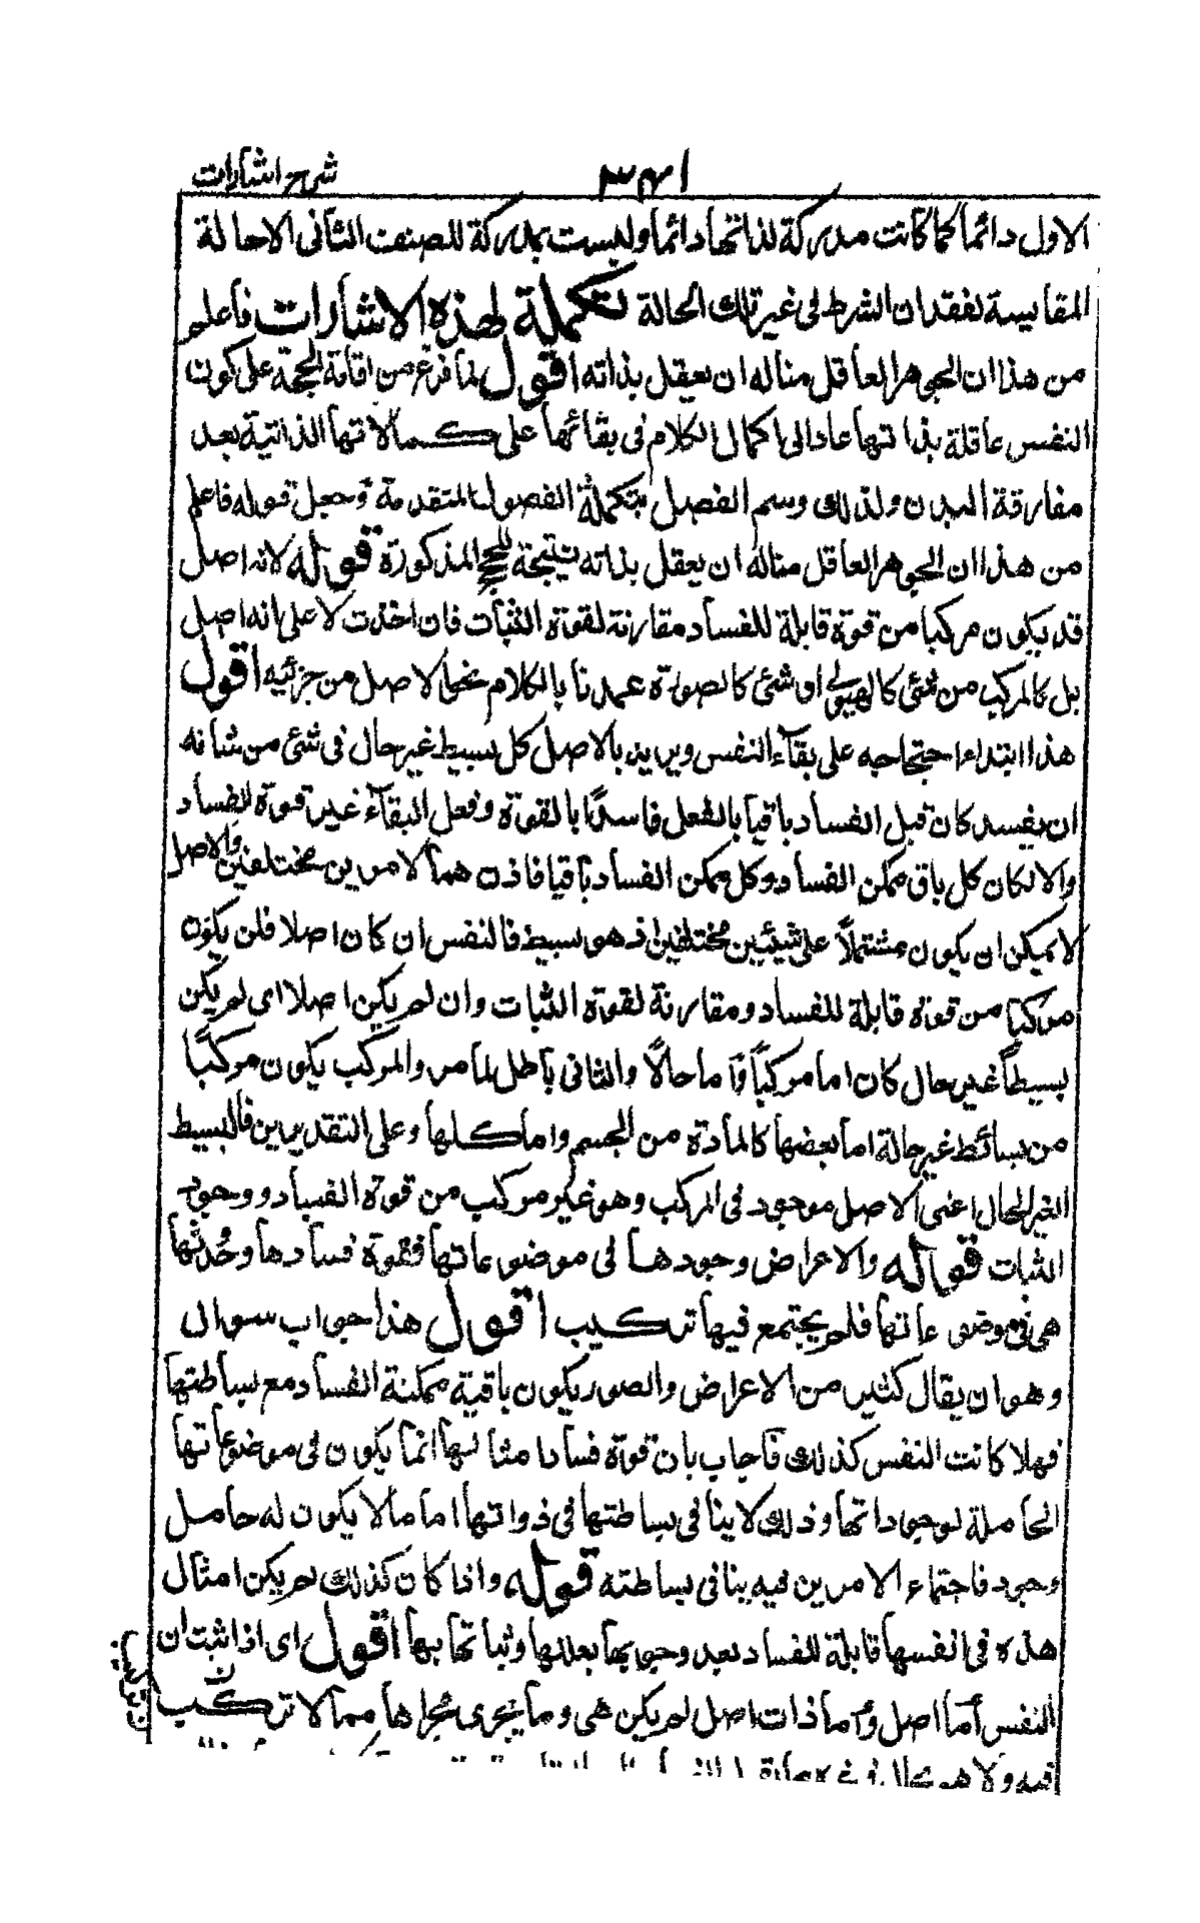 شرح اشارات
الاول دائماً كما كانت مدركة لذاتها دائماً وليست بمدركة للصنف الثانى الا حالة
المقايسة لفقدان الشرط فى غير تلك الحالة تكملة لهذه الاشارات فاعلم
من هذا ان الجوهر العاقل مناله ان يعقل بذاته اقول لما فرغ من اقامة الحجة على كون
النفس عاقلة بذاتها عاد الى اكمال الكلام فى بقائها على كمالاتها الذاتية بعد
مفارقة البدن ولذلك وسم الفصل بتكملة الفصول المتقدمة وجعل قوله فاعلم
من هذا ان الجوهر العاقل مناله ان يعقل بذاته نتيجة للحجج المذكورة قوله لانه اصل
قد يكون مركبا من قوة قابلة للفساد مقارنة لقوة الثبات فان اخذت لا على انه اصل
بل كالمركب من شئ كالهيولى او شئ كالصورة عمدنا بالكلام نحو الاصل من جزئيه اقول
هذا ابتداء احتجاجه على بقاء النفس ويريد بالاصل كل بسيط غير حال فى شئ من شانه
ان يفسد كان قبل الفساد باقيا بالفعل فاسدًا بالقوة وفعل البقاء غير قوة الفساد
والا لكان كل باق ممكن الفساد وكل ممكن الفساد باقيا فاذن هما لامرين مختلفين والاصل
لا يمكن ان يكون مشتملًا على شيئين مختلفين اذ هو بسيط فالنفس ان كان اصلا فلن يكون
مركبا من قوة قابلة للفساد ومقارنة لقوة الثبات وان لم يكن اصلا اى لم يكن
بسيطاً غير حال كان اما مركباً واما حالًا والثانى باطل لما مر والمركب يكون مركبًا
من بسائط غير حالة اما بعضها كالمادة من الجسم واما كلها وعلى التقديرين فالبسيط
الغير الحال اعنى الاصل موجود فى المركب وهو غير مركب من قوة الفساد ووجود
الثبات قوله والاعراض وجودها فى موضوعاتها فقوة فسادها وحُدثها
هى فى موضوعاتها فلم يجتمع فيها تركيب اقول هذا جواب سوال
وهو ان يقال كثير من الاعراض والصور يكون باقية ممكنة الفساد مع بساطتها
فهلا كانت النفس كذلك فاجاب بان قوة فساد امثالها انما يكون فى موضوعاتها
الحاملة لوجوداتها وذلك لا ينافى بساطتها فى ذواتها اما ما لا يكون له حامل
وجود فاجتماع الامرين فيه ينافى بساطته قوله واذا كان كذلك لم يكن امثال
هذه فى انفسها قابلة للفساد بعد وجوبها بعللها وثباتها بها اقول اى اذا ثبت ان
النفس أما اصل وأما ذات اصل لم يكن هى وما يجرى مجراها مما لا تركب
فيه ولا هو